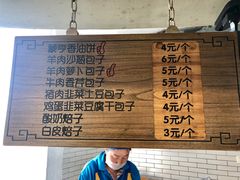 蒙享香油饼 4元/个
羊肉沙葱包子 6元/个
羊肉萝卜包子 5元/个
牛肉香芹包子 5元/个
猪肉韭菜土豆包子 4元/个
鸡蛋韭菜豆腐干包子 4元/个
酸奶焙子 5元/个
白皮焙子 3元/个